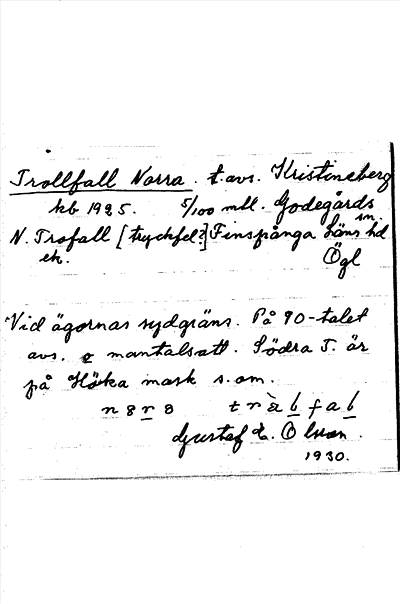 Trollfall Norra. t. avs. Kristineberg
kb 1925. 5/100 mtl. Godegårds sn.
N. Trofall [tryckfel?] Finspånga läns hd
ek. Ögl
Vid ägornas sydgräns. På 90-talet
avs. e mantalsatt. Södra T. är
på Höcka mark s. om.
Gustaf E. Olson.
1930.